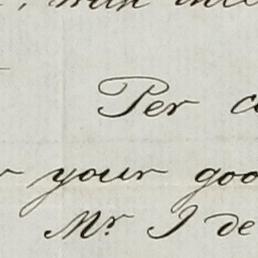 with
Per
your goo
Mr. I de